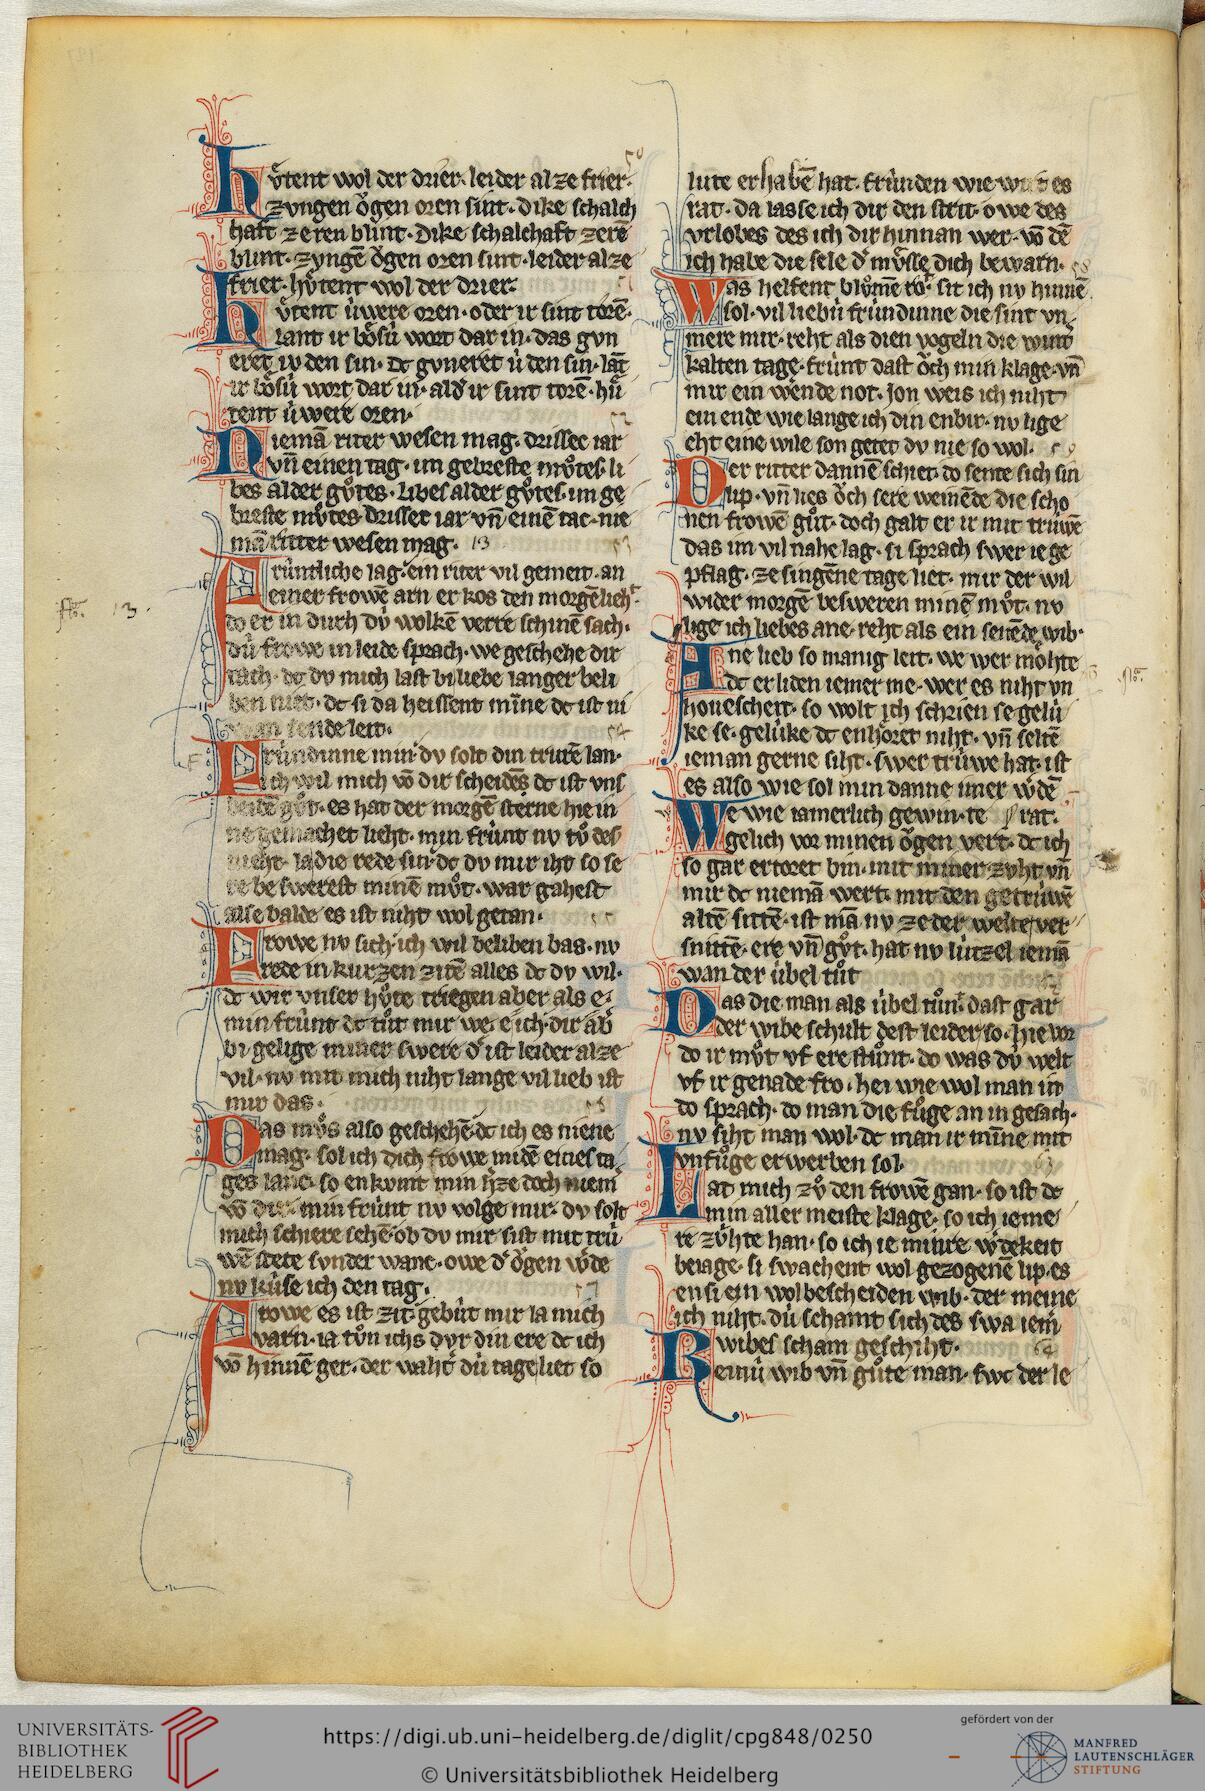 hv̊tent wol der drier. leider al ze frier.
zvngen ǒgen oren sint. dike schalch
haft zeren blint. dike schalchaft zerē
blint. zvngē ǒgen oren sint. leider al ze
frier. hv̊tent wol der drier.
hv̊tent ùwere oren. oder ir sint torē.
lant ir bo̊sù wort dar in. das gvn
eret iv den sin. dc gvneret ù den sin. lāt
ir bo̊sù wort dar in. ald ir sint torē. hv̊
tent ùwere oren.
Niemā riter wesen mag. drissec iar
vn̄ einen tag. im gebreste mv̊tes. li
bes alder gv̊tes. libes alder gv̊tes. im ge
breste mv̊tes. drisset iar vn̄ einē tac. nie
mā ritter wesen mag. 13
Frùntliche lag. ein riter vil gemeit. an
einer frowē arn er kos den morgē lieht.
do er in dvrh dù wolkē verre schinē sach.
dù frowe in leide sprach. we geschehe dir
tach. dc dv mich last bi liebe langer beli
ben niet. dc si da heissent mīne dc ist ni
wan sende leit.
Frùndinne min dv solt din trurē lan.
ich wil mich vō dir scheidēs dc ist vns
beidē gv̊t. es hat der morgē sterne hie in
ne gemachet lieht. min frùnt nv tv̊ des
nieht. la die rede sin dc dv mir iht so se
re beswerest minē mv̊t. war gahest
alse balde es ist niht wol getan.
Frowe nv sich ich wil beliben bas. nv
rede in kurzen zitē alles dc dv wil.
dc wir vnser hv̊te triegen aber als e.
min frùnt dc tv̊t mir we. e ich dir ab̕
bi gelige miner swere d̕ ist leider al ze
vil. nv mit mich niht lange vil lieb ist
mir das.
Das mv̊s also geschehē dc ich es niene
mag. sol ich dich frowe midē eines ta
ges lanc. so enkvmt min h̕ze doch niem̕
vō dir. min frùnt nv volge mir. dv solt
mich schiere sehē ob dv mir sist mit trù
wē stete svnder wanc. owe d̕ ǒgen w̕de
nv kùse ich den tag.
Frowe es ist zit gebùt mir la mich
varn. ia tv̊n ichs dvr din ere dc ich
vō hinnē ger. der waht̕ dù tageliet so
lute erhabē hat. frùnden wie wirt es
rat. da lasse ich dir den strit. owe des
vrlobes des ich dir hinnan wer. vō dē
ich habe die sele d̕ mv̊sse dich bewarn.
Was helfent blv̊mē rot. sit ich nv hinnē
sol. vil liebù frùndinne die sint vn
mere mir. reht als dien vogeln die wint̕
kalten tage. frùnt dast ǒch min klage. vn̄
mir ein wēnde not. Jon weis ich niht
ein ende wie lange ich din enbir. nv lige
eht eine wile son getet dv nie so wol.
Der ritter dannē schiet. do sente sich sin
lip. vn̄ lies ǒch sere weinēde die scho
nen frowē gv̊t. doch galt er ir mit trùwē
das im vil nahe lag. si sprach swer ie ge
pflag. ze singēne tage liet. mir der wil
wider morgē besweren minē mv̊t. nv
lige ich liebes ane. reht als ein senēde wib.
Ane lieb so manig leit. we wer mo̊hte
dc erliden iemer me. wer es niht vn
houescheit. so wolt ich schrien se gelù
ke se. gelùke dc enho̊ret niht. vn̄ seltē
ieman gerne siht. swer trùwe hat. ist
es also wie sol min danne imer w̕dē
We wie iamerlich gewin. te rat.
gelich vor minen ǒgen vert. dc ich
so gar ertoret bin. mit miner zvht vn̄
mir dc niemā wert. mit den getrùwē
altē sittē. ist mā nv ze der welte ver
snittē. ere vn̄ gv̊t. hat nv lùtzel iemā
wan der ùbel tv̊t
Das die man als ùbel tv̊nt. dast gar
der wibe schult dest leider so. hie vor
do ir mv̊t vf ere stv̊nt. do was dù welt
vf ir genade fro. hei wie wol man in
do sprach. do man die fv̊ge an in gesach.
nv siht man wol. dc man ir mīne mit
vnfv̊ge erwerben sol.
Lat mich zv̊ den frowē gan. so ist dc
min aller meiste klage. so ich ieme
re zv̊hte han. so ich ie minre w̕dekeit
beiage. si swachent wol gezogenē lip. es
en si ein wol bescheiden wib. der meine
ich niht. dù schamt sich des swa iem̕
wibes scham geschiht.
Reinù wib vn̄ gv̊te man. swc der le
UNIVERSITÄTS-
BIBLIOTHEK
HEIDELBERG
https://digi.ub.uni-heidelberg.de/diglit/cpg848/0250
© Universitätsbibliothek Heidelberg
gefördert von der
MANFRED
LAUTENSCHLÄGER
STIFTUNG